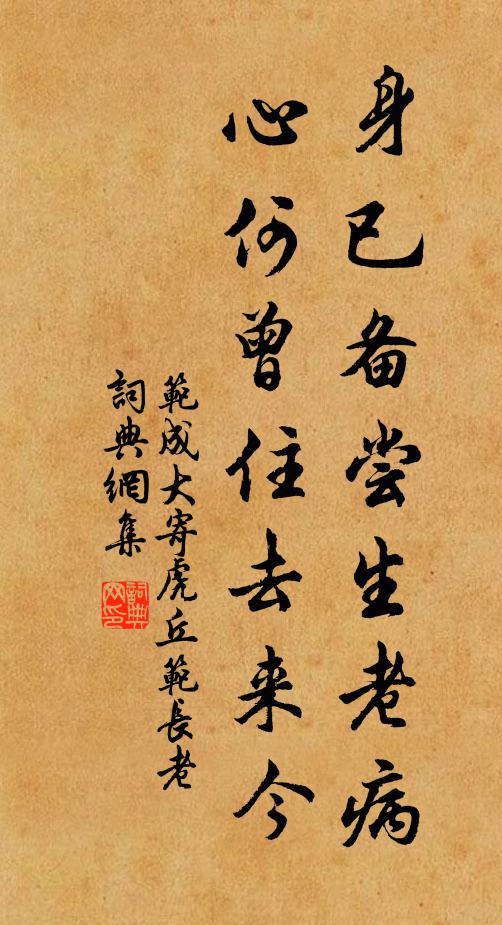 身已备尝生老病
心何曾住去来今
範成大寄虎丘範長老
詞典網集
詞典網印